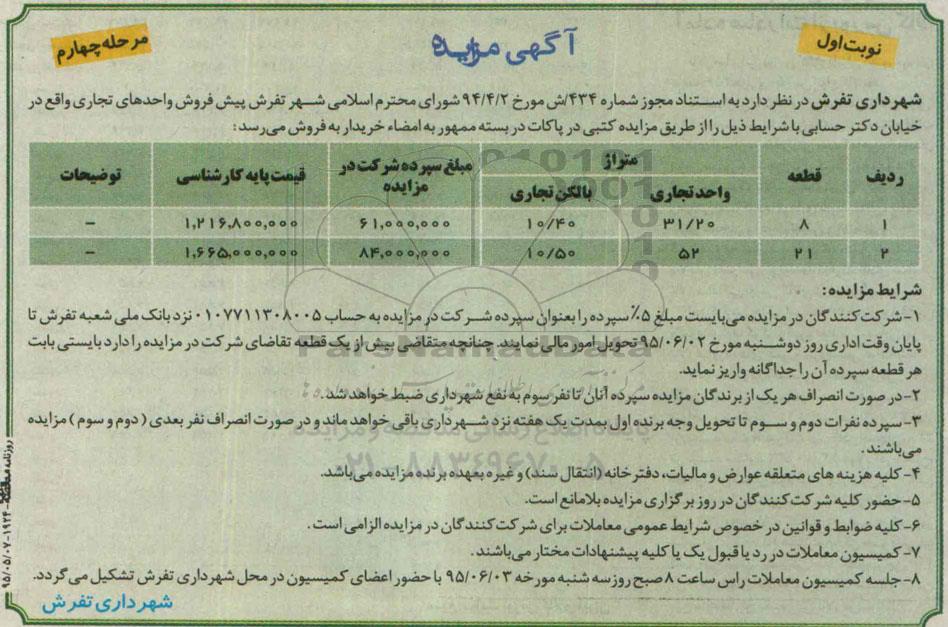 نوبت اول
آگهی مزایده
مرحله چهارم
شهرداری تفرش در نظر دارد به استناد مجوز شماره ۴۳۴/ش مورخ ۹۴/۴/۲ شورای محترم اسلامی شهر تفرش پیش فروش واحدهای تجاری واقع در
خیابان دکتر حسابی با شرایط ذیل را از طریق مزایده کتبی در پاکات در بسته ممهور به امضاء خریدار به فروش می رسد:
ردیف قطعه متراژ مبلغ سپرده شرکت در مزایده قیمت پایه کارشناسی توضیحات
واحد تجاری بالکن تجاری
۱ ۸ ۳۱/۲۰ ۱۰/۴۰ ۶۱,۰۰۰,۰۰۰ ۱,۲۱۶,۸۰۰,۰۰۰ –
۲ ۲۱ ۵۲ ۱۰/۵۰ ۸۴,۰۰۰,۰۰۰ ۱,۶۶۵,۰۰۰,۰۰۰ –
شرایط مزایده:
۱- شرکت کنندگان در مزایده می بایست مبلغ ۵٪ سپرده را بعنوان سپرده شرکت در مزایده به حساب ۰۱۰۷۷۱۱۳۰۸۰۰۵ نزد بانک ملی شعبه تفرش تا
پایان وقت اداری روز دوشنبه مورخ ۹۵/۰۶/۰۲ تحویل امور مالی نمایند. چنانچه متقاضی بیش از یک قطعه تقاضای شرکت در مزایده را دارد بایستی بابت
هر قطعه سپرده آن را جداگانه واریز نماید.
۲- در صورت انصراف هر یک از برندگان مزایده سپرده آنان تا نفر سوم به نفع شهرداری ضبط خواهد شد.
۳- سپرده نفرات دوم و سوم تا تحویل وجه برنده اول بمدت یک هفته نزد شهرداری باقی خواهد ماند و در صورت انصراف نفر بعدی (دوم و سوم) مزایده
می باشند.
۴- کلیه هزینه های متعلقه عوارض و مالیات، دفترخانه (انتقال سند) و غیره بعهده برنده مزایده می باشد.
۵- حضور کلیه شرکت کنندگان در روز برگزاری مزایده بلامانع است.
۶- کلیه ضوابط و قوانین در خصوص شرایط عمومی معاملات برای شرکت کنندگان در مزایده الزامی است.
۷- کمیسیون معاملات در رد یا قبول یک یا کلیه پیشنهادات مختار می باشند.
۸- جلسه کمیسیون معاملات راس ساعت ۸ صبح روز سه شنبه مورخه ۹۵/۰۶/۰۳ با حضور اعضای کمیسیون در محل شهرداری تفرش تشکیل می گردد.
شهرداری تفرش
ParsNamadData
۰۲۱-۸۸۳۴۹۶۷۰-۵
روزنامه مناقصه مزایده - ۱۹۲۴ - ۹۵/۰۵/۰۷